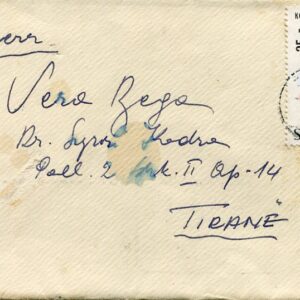 Vera Bega
Rr. Syrri Kodra
Pall. 2 Shk. II Ap-14
TIRANË